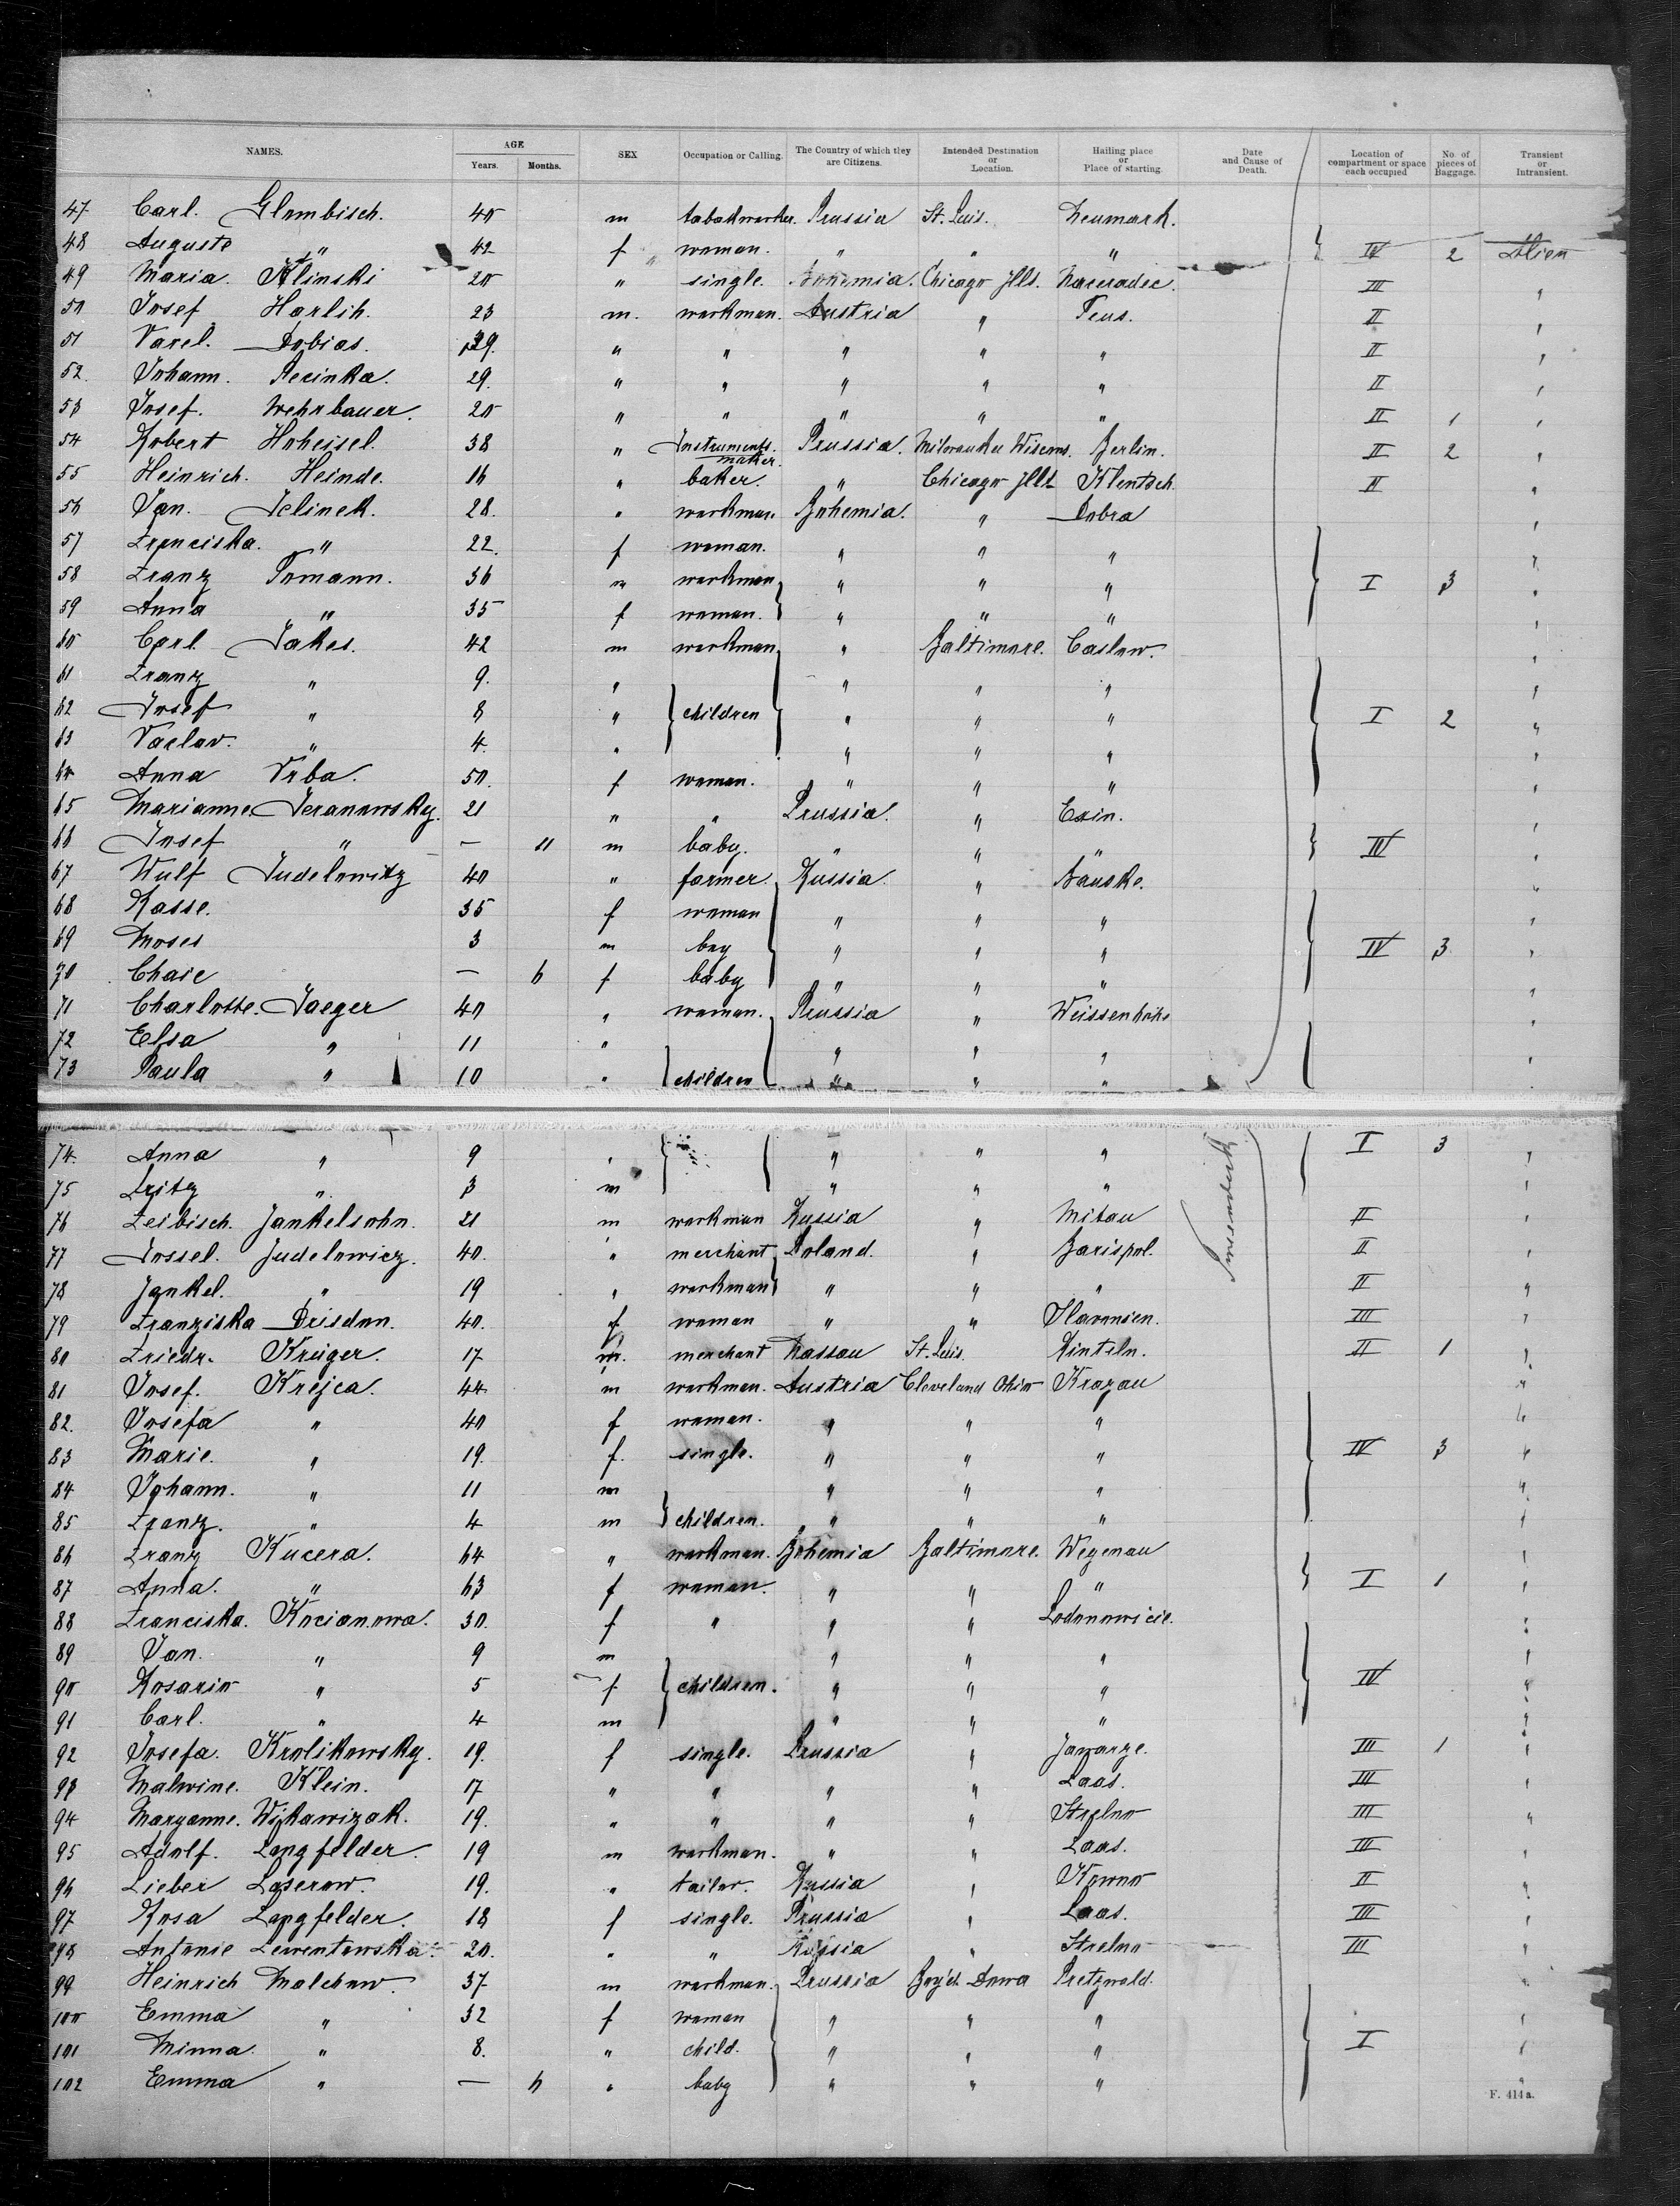 NAMES. AGE Years. Months. SEX Occupation or Calling. The Country of which they are Citizens. Intended Destination or Location. Hailing place or Place of starting. Date and Cause of Death. Location of compartment or space each occupied No. of pieces of Baggage. Transient or Intransient.
47 Carl. Glombisch. 40 m tabakworker. Prussia St. Luis. Neumark.
48 Auguste " 42 f woman. " " " IV 2 Alien
49 Maria. Klinski 20 " single. Bohemia. Chicago Jlls. Naceradec. III "
50 Josef Harlih. 23 m. workman. Austria " Teus. II "
51 Varel. Dobias. 29. " " " " " II "
52. Johann. Recinka. 29. " " " " " II "
53 Josef. Wehrbauer. 20 " " " " " II 1 "
54 Robert Hoheisel. 38 " Instruments. maker. Prussia. Milwaukee Wiscons. Berlin. II 2 "
55 Heinrich. Heinde. 16 " baker. " Chicago Jlls. Klentsch II "
56 Jan. Jelinek. 28. " workman. Bohemia. " Dobra "
57 Franciska. " 22. f woman. " " " "
58 Franz Pomann. 36 m workman " " " I 3 "
59 Anna " 35 f woman. " " " "
60 Carl Jakes. 42 m workman " Baltimore. Caslow. "
61 Franz " 9. " " " " "
62 Josef " 8 " children " " " I 2 "
63 Vaclav. " 4. " " " " "
64 Anna Vrba. 50. f woman. " " " "
65 Marianne Jeranowsky. 21 " " Prussia. " Exin. "
66 Josef " — 11 m baby. " " " IV "
67 Wulf Judelowitz 40 " farmer. Russia. " Bauske. "
68 Rasse. 35 f woman " " " "
69 Moses 3 m boy " " " IV 3 "
70 Chaie — 6 f baby " " " "
71 Charlotte. Jaeger 40 " woman. Prussia " Weissenhöhe "
72 Elsa " 11 " " " " "
73 Paula " 10 " children " " " "
74. Anna " 9 " " " " I 3 "
75 Fritz " 3 m " " " "
76 Leibisch. Jankelsohn. 21 m workman Russia " Mitau II "
77 Jossel. Judelowicz. 40. " merchant Poland. " Barispol. II "
78 Jankel. " 19 " workman " " " II "
79 Franziska Drisdon. 40. f woman " " Slavonsien. III "
80 Friedr. Krüger. 17 m. merchant Nassau St. Luis. Rinteln. II 1 "
81 Josef. Krejca. 44 m workman. Austria Cleveland Ohio Krazau "
82. Josefa " 40 f woman. " " " "
83 Marie. " 19. f. single. " " " IV 3 "
84 Johann. " 11 m " " " "
85 Franz. " 4 m children. " " " "
86 Franz Kucera. 64 " workman. Bohemia Baltimore. Wegenau "
87 Anna. " 63 f woman. " " " I 1 "
88 Franciska. Kocianowa. 30. f " " " Lodonowicie. "
89 Jan. " 9 m " " " "
90 Rosario " 5 f children. " " " IV "
91 Carl. " 4 m " " " "
92 Josefa. Krolikowsky. 19. f single. Prussia " Jazarze. III 1 "
93 Malwine. Klein. 17 " " " " Laas. III "
94 Maryanne. Wikawizak. 19. " " " " Strelno III "
95 Adolf. Langfelder. 19 m workman. " " Laas. III "
96 Lieber Laserow. 19. " tailor. Russia " Kowno II "
97 Rosa Langfelder. 18 f single. Prussia " Laas. III "
98 Antonie Lewentowska. 20. " " Russia " Strelno III "
99 Heinrich Molchow. 37 m workman. Prussia Boyd. Iowa Pretzwald. "
100 Emma " 32 f woman " " " "
101 Minna. " 8. " child. " " " I "
102 Emma " — 6 " baby " " " "
F. 414 a.